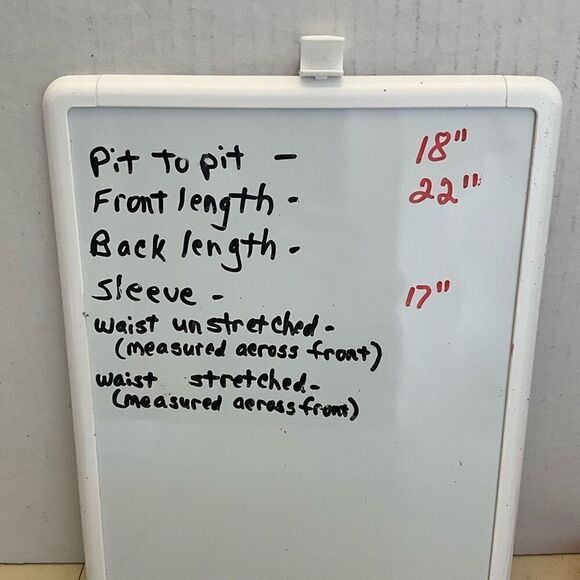 Pit to pit - 18"
Front length - 22"
Back length -
Sleeve - 17"
waist unstretched -
(measured across front)
waist stretched -
(measured across front)